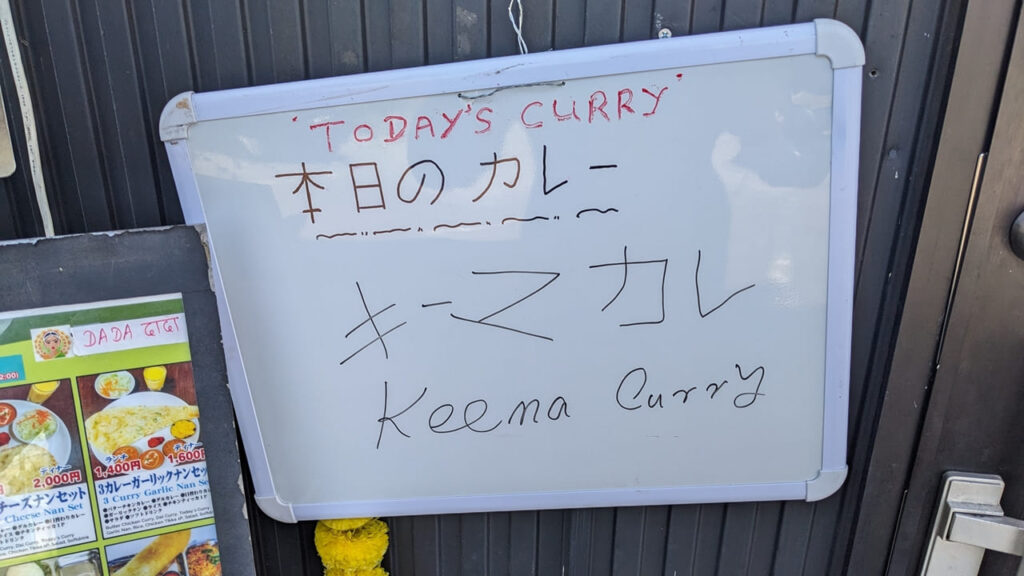 'TODAY'S CURRY'
本日のカレー
キーマカレ
Keema Curry
DADA दादा
ディナー
2,000円
チーズナンセット
Cheese Nan Set
ランチ
1,400円
ディナー
1,600円
3カレーガーリックナンセット
3 Curry Garlic Nan Set